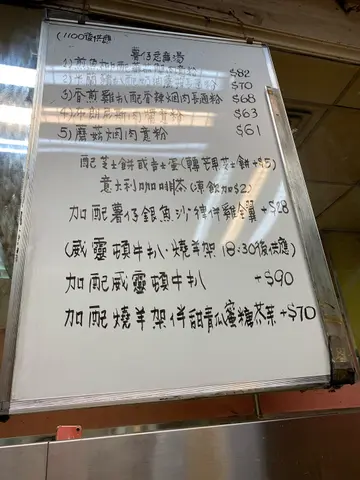 (1100後供應
薯仔忌廉湯
1) $82
2) $70
3)香煎雞扒配香辣烟肉長通粉 $68
4) $63
5)蘑菇烟肉意粉 $61
配芝士餅或香士蛋(轉芒果芝士餅+$5)
意大利咖啡茶(凍飲加$2)
加配薯仔銀魚沙律伴雞全翼 +$28
(威靈頓牛扒·燒羊架 18:30後供應)
加配威靈頓牛扒 +$90
加配燒羊架伴甜青瓜蜜糖芥茉 +$70